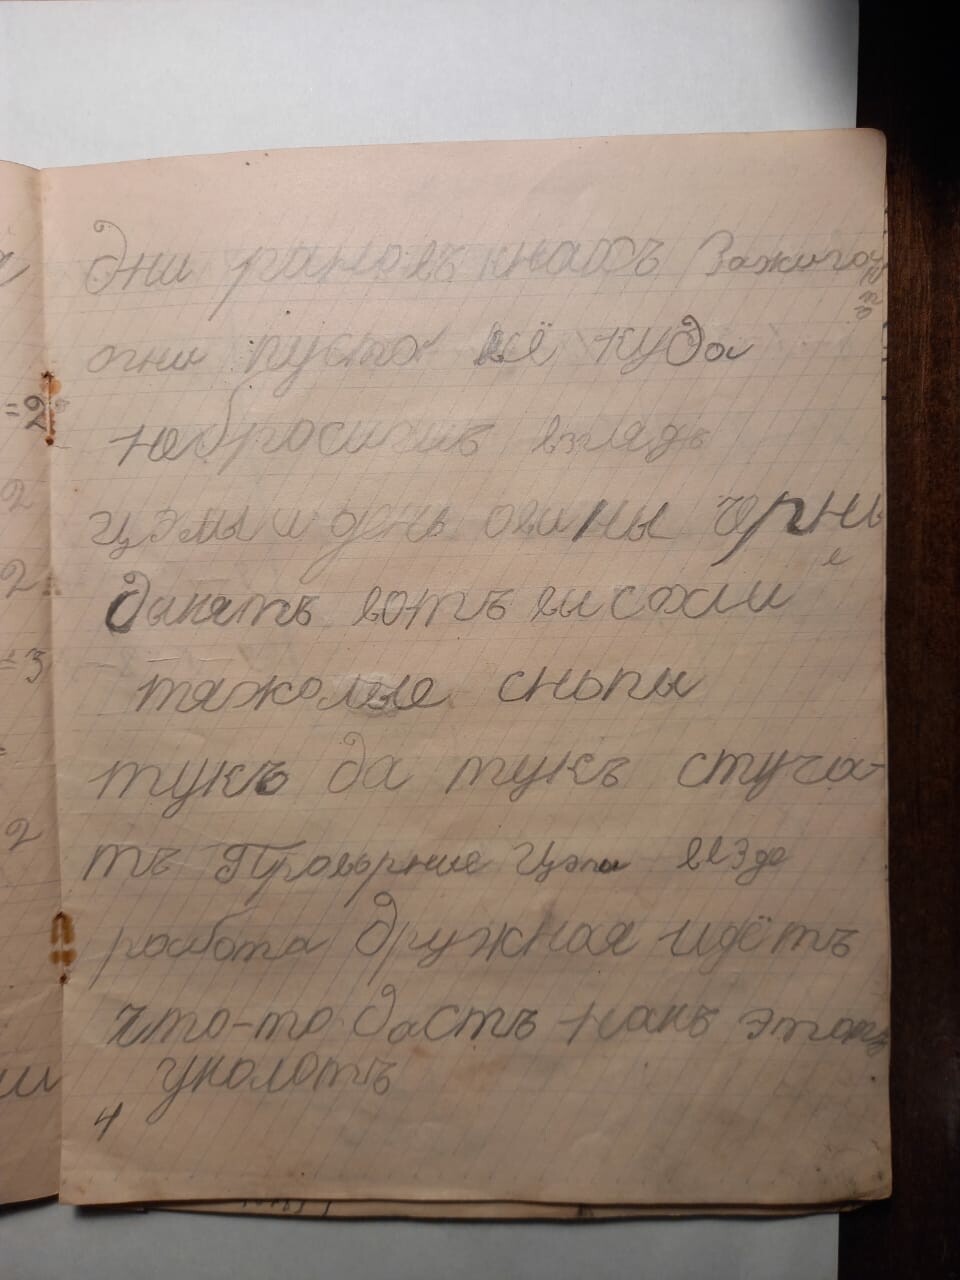 Дни рано въ кнахъ Зажигаютъ
огни пусто всё куда
небросишь взглядъ
цэлы и день овины чорны
дымятъ вотъ высохли
тяжолые снопы
тукъ да тукъ стуча-
тъ Проворные Цэпы везде
работа дружная идётъ
что-то дастъ намъ этотъ
умолотъ
=2
2
2
=3
=
2
4